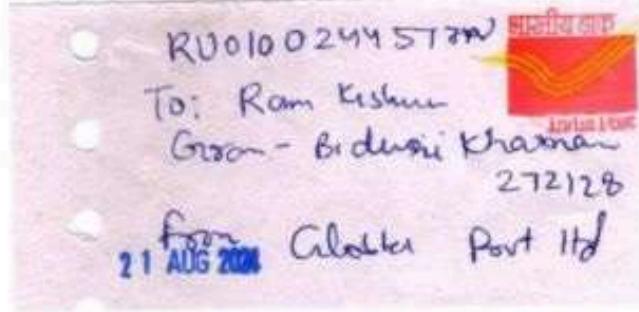 RU010024457IN
भारतीय डाक
To: Ram Kishun
Gram - Bidwsi Khaman
272128
from Globler Povt ltd
21 AUG 2024